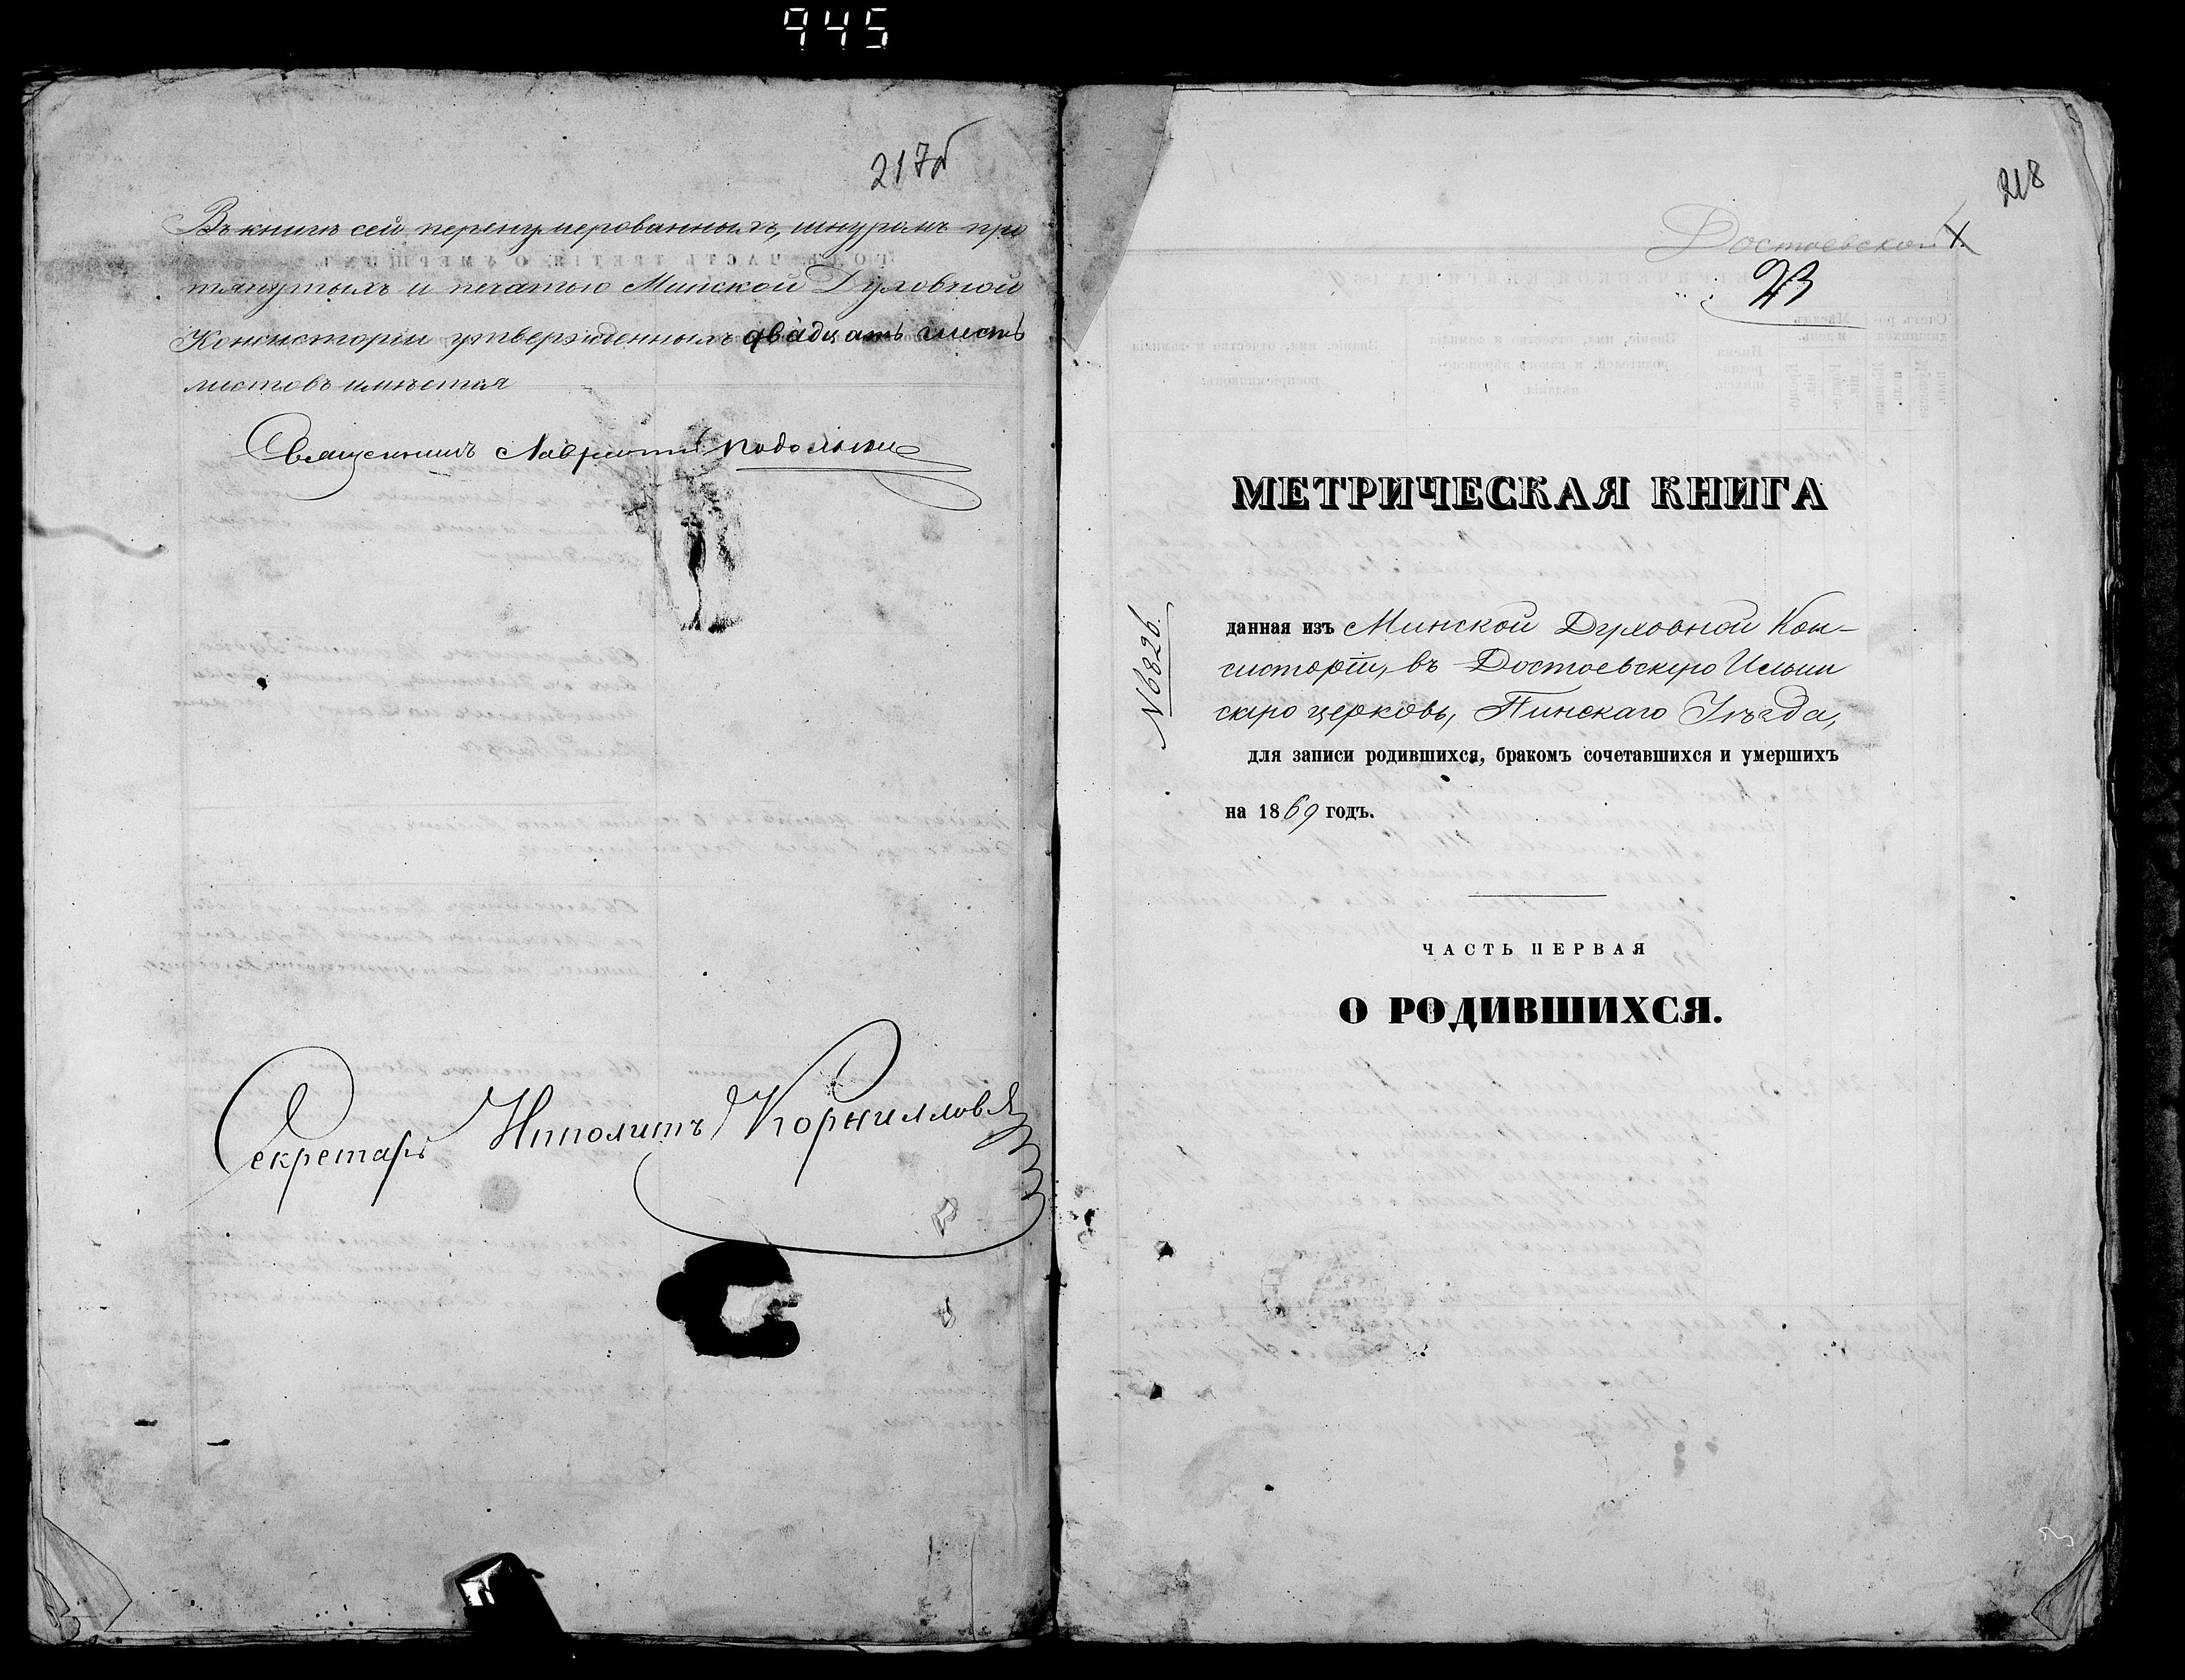 945
217б
Въ книгѣ сей перенумерованныхъ, шнуромъ про
тянутыхъ и печатью Минской Духовной
Консисторіи утвержденныхъ двадцать шесть
листовъ имѣется
Священникъ Лаврентій
Секретарь Ипполитъ Корнилловъ
218
Достоевской
23
МЕТРИЧЕСКАЯ КНИГА
№ 6826.
данная изъ Минской Духовной Кон-
систоріи, въ Достоевскую Ильин
скую церковь, Пинскаго Уѣзда,
для записи родившихся, бракомъ сочетавшихся и умершихъ
на 1869 годъ.
ЧАСТЬ ПЕРВАЯ
О РОДИВШИХСЯ.